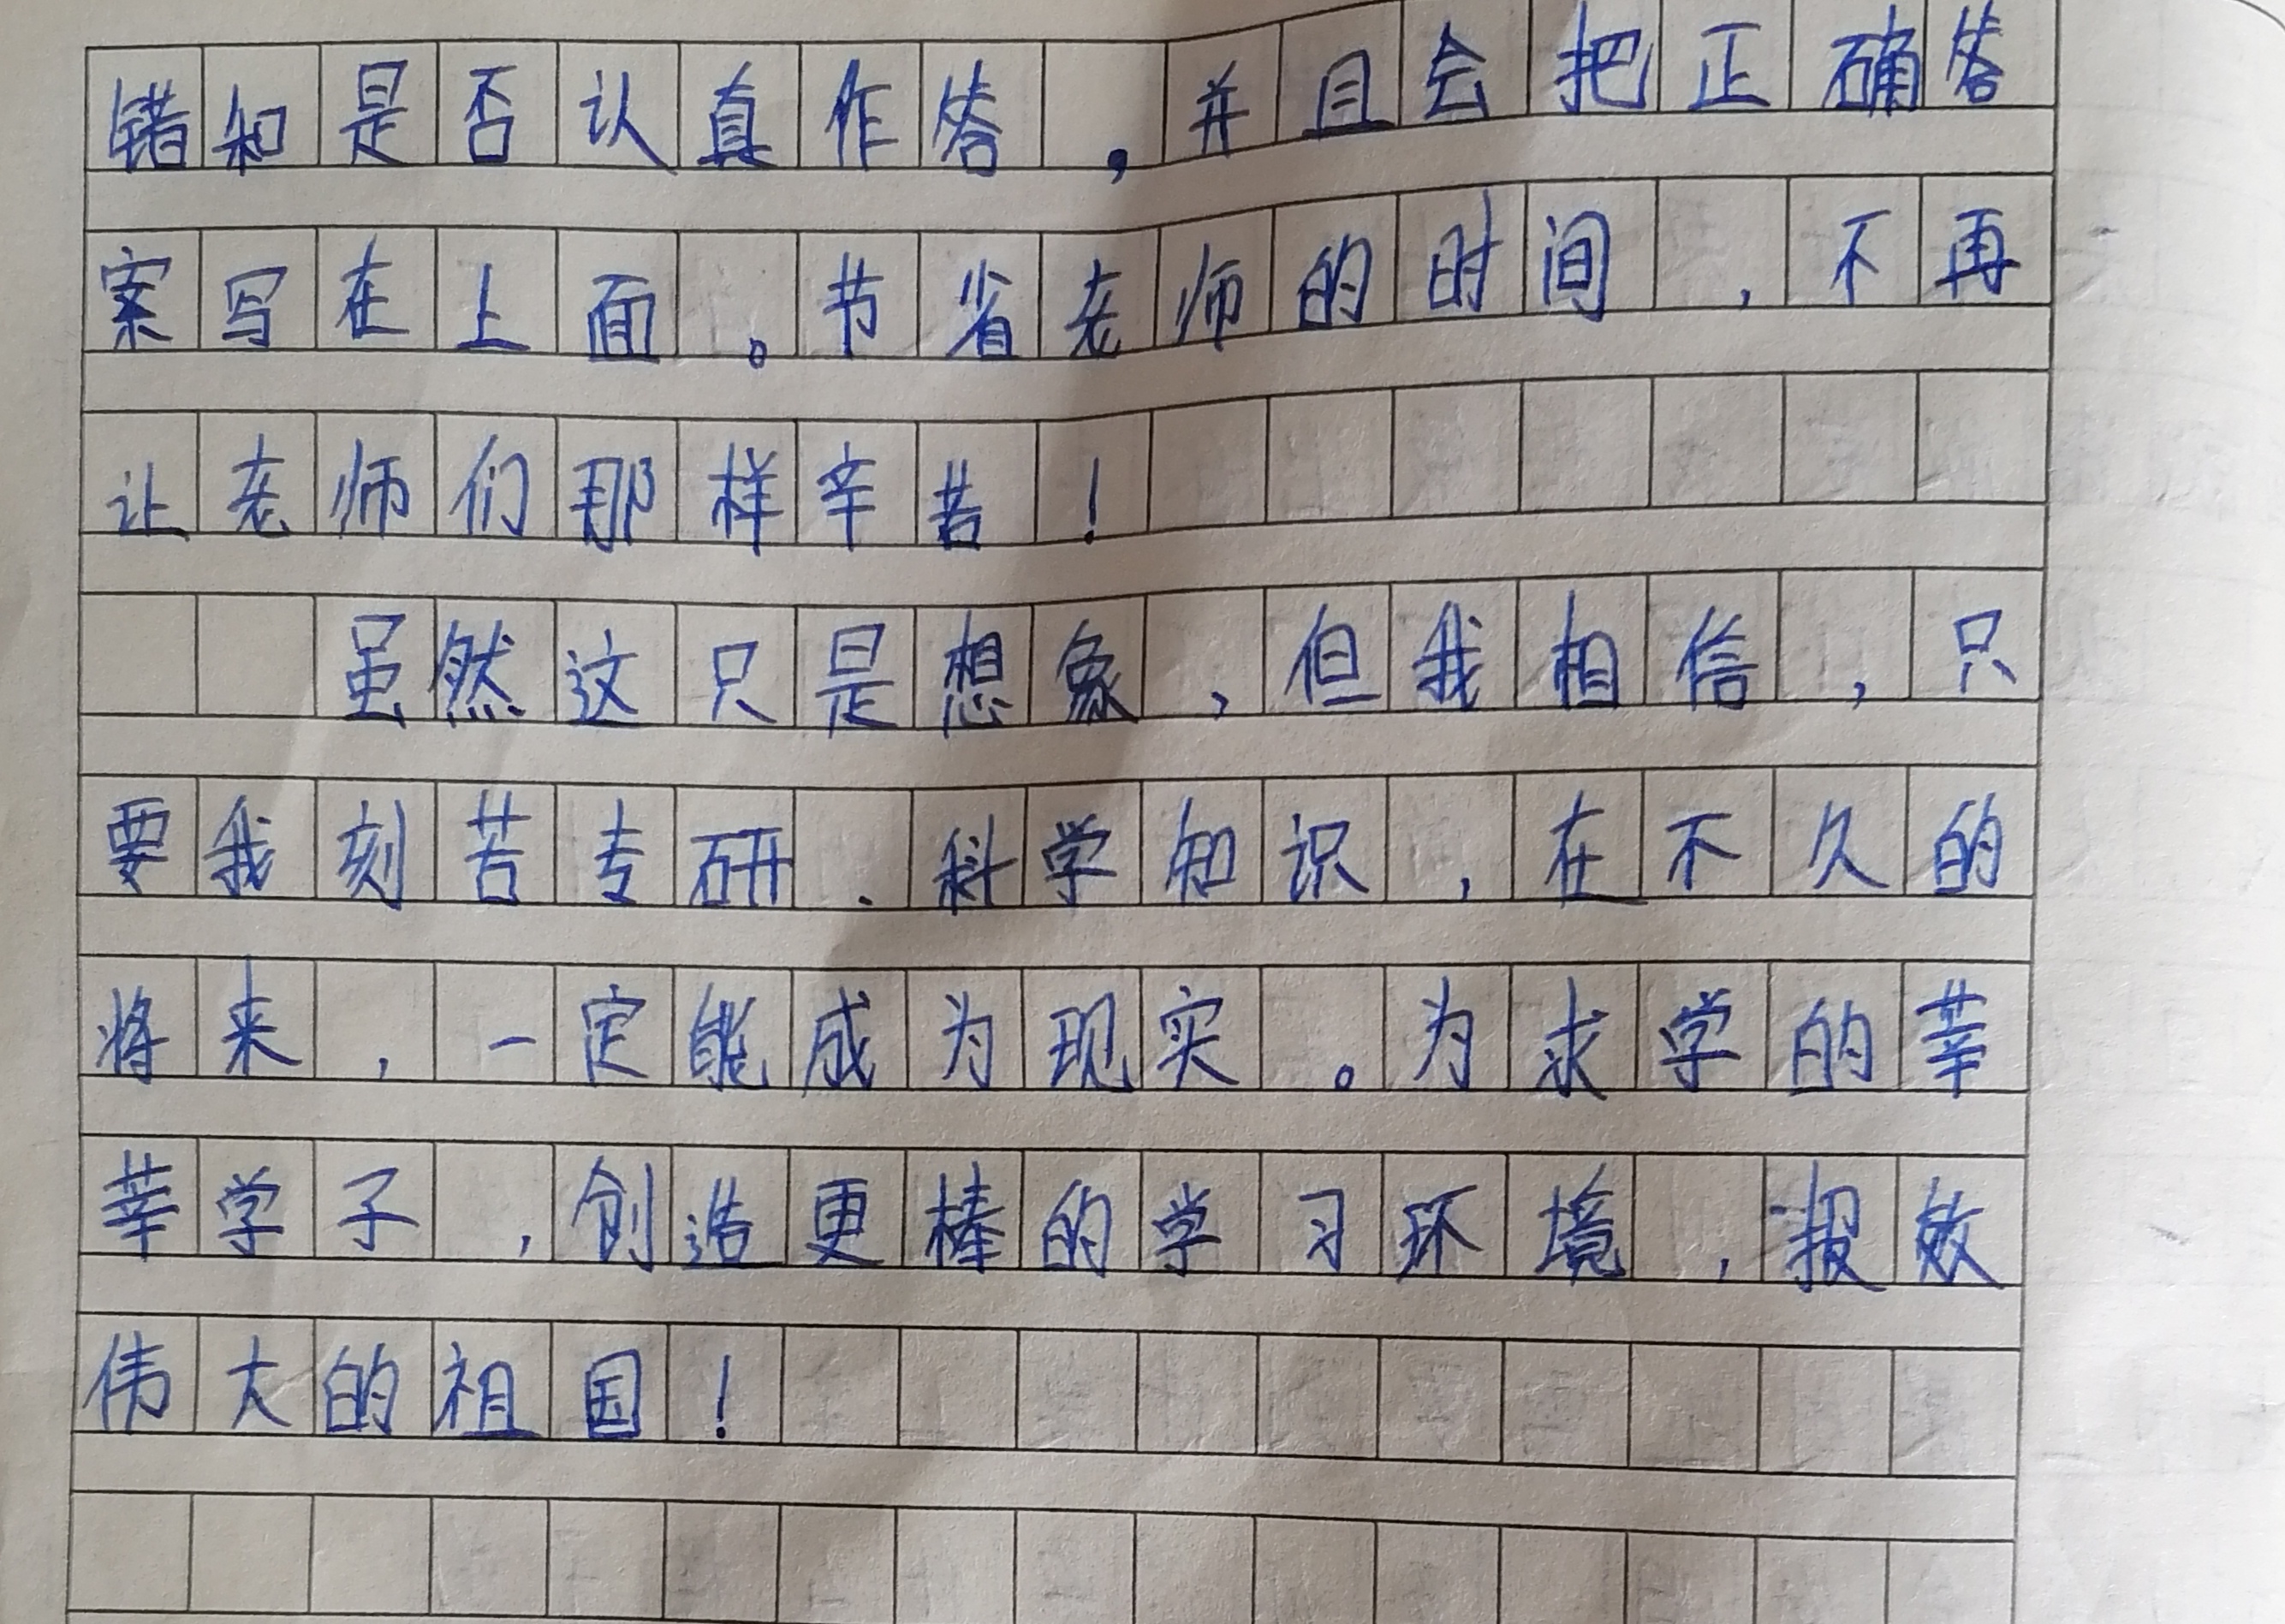 错和是否认真作答，并且会把正确答
案写在上面。节省老师的时间，不再
让老师们那样辛苦！
虽然这只是想象，但我相信，只
要我刻苦专研、科学知识，在不久的
将来，一定能成为现实。为求学的莘
莘学子，创造更棒的学习环境，报效
伟大的祖国！